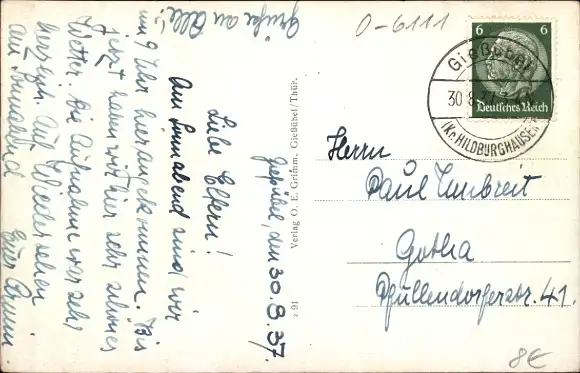 O-6111
6 6
Deutsches Reich
Gießübel
30.8.37
(Kr. HILDBURGHAUSEN)
Herrn
Paul Umbreit
Gotha
Pfullendorferstr. 41.
8€
Verlag O. E. Grimm, Gießübel/Thür.
z 91
Gießübel, den 30.8.37.
Liebe Eltern!
Am Sonnabend sind wir
um 9 Uhr hier angekommen. Bis
jetzt haben wir hier sehr schönes
Wetter. Die Aufnahme war sehr
herzlich. Auf Wiedersehen
am Sonnabend
Euer
Grüße an Alle!